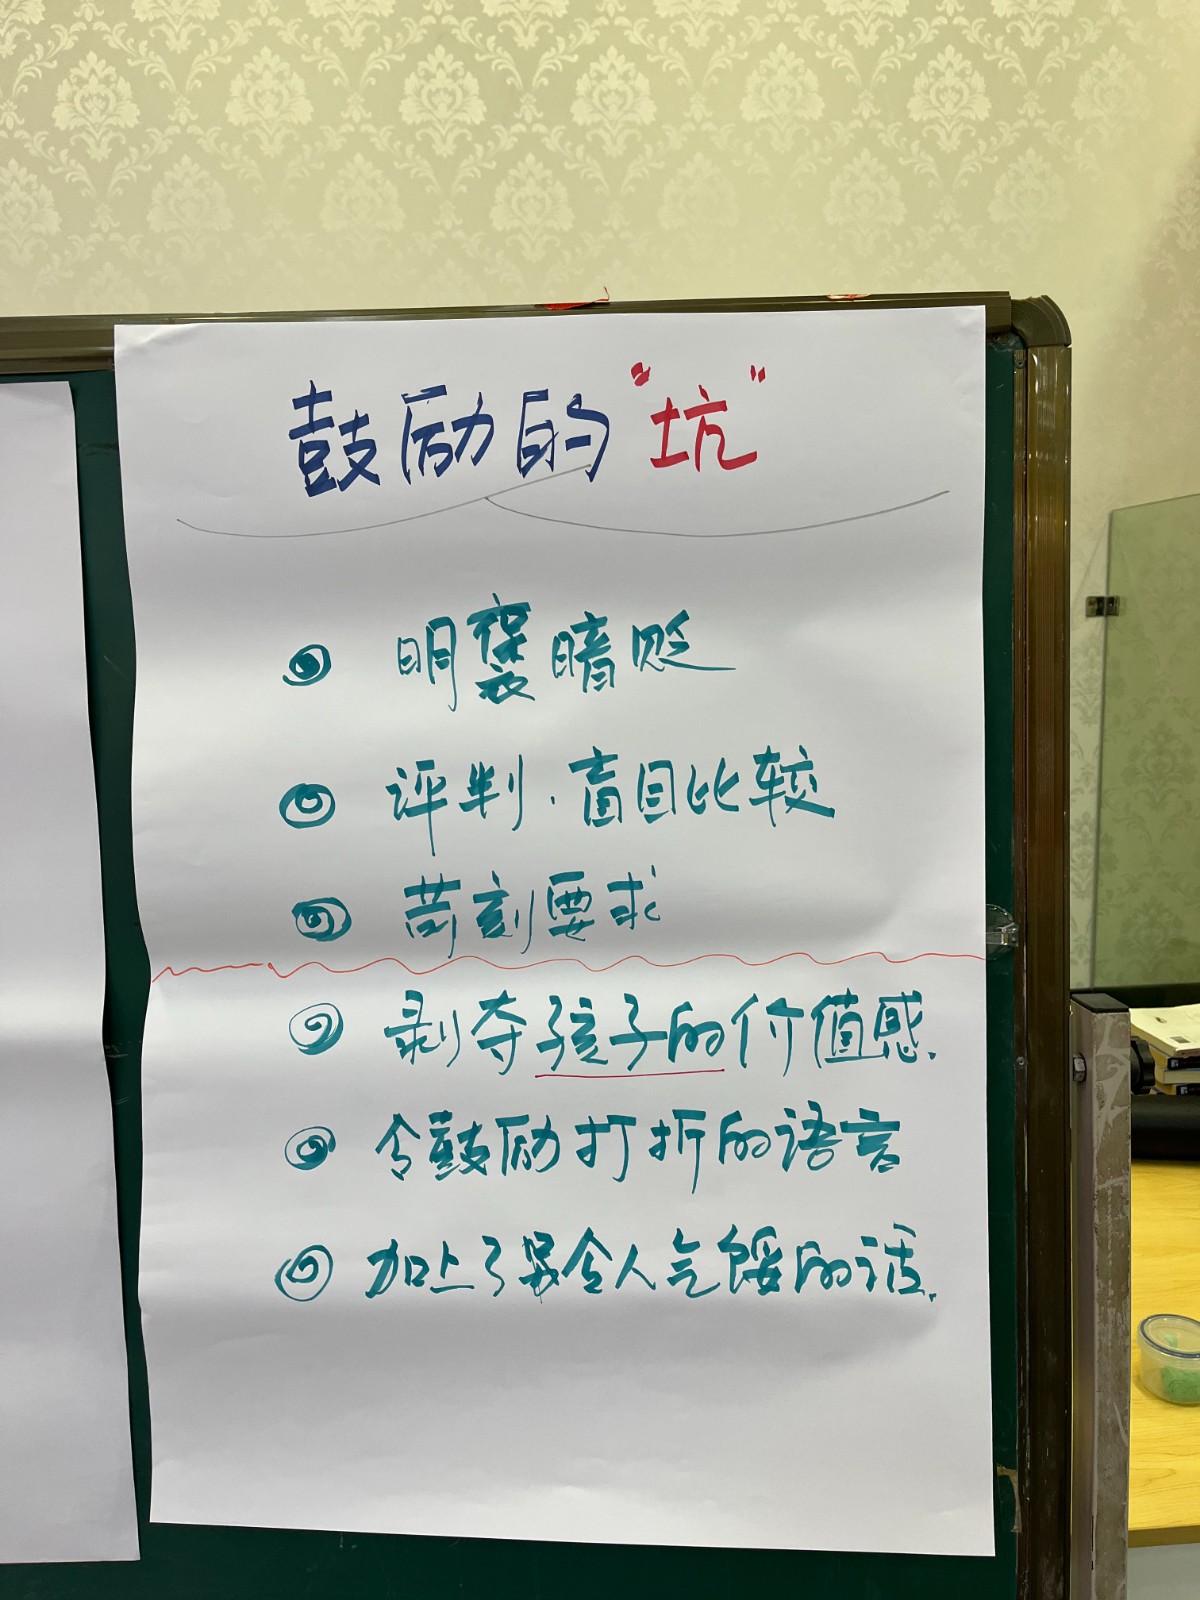 鼓励的"坑"
明褒暗贬
评判.盲目比较
苛刻要求
剥夺孩子的价值感.
令鼓励打折的语言
加上了 令人气馁的话.